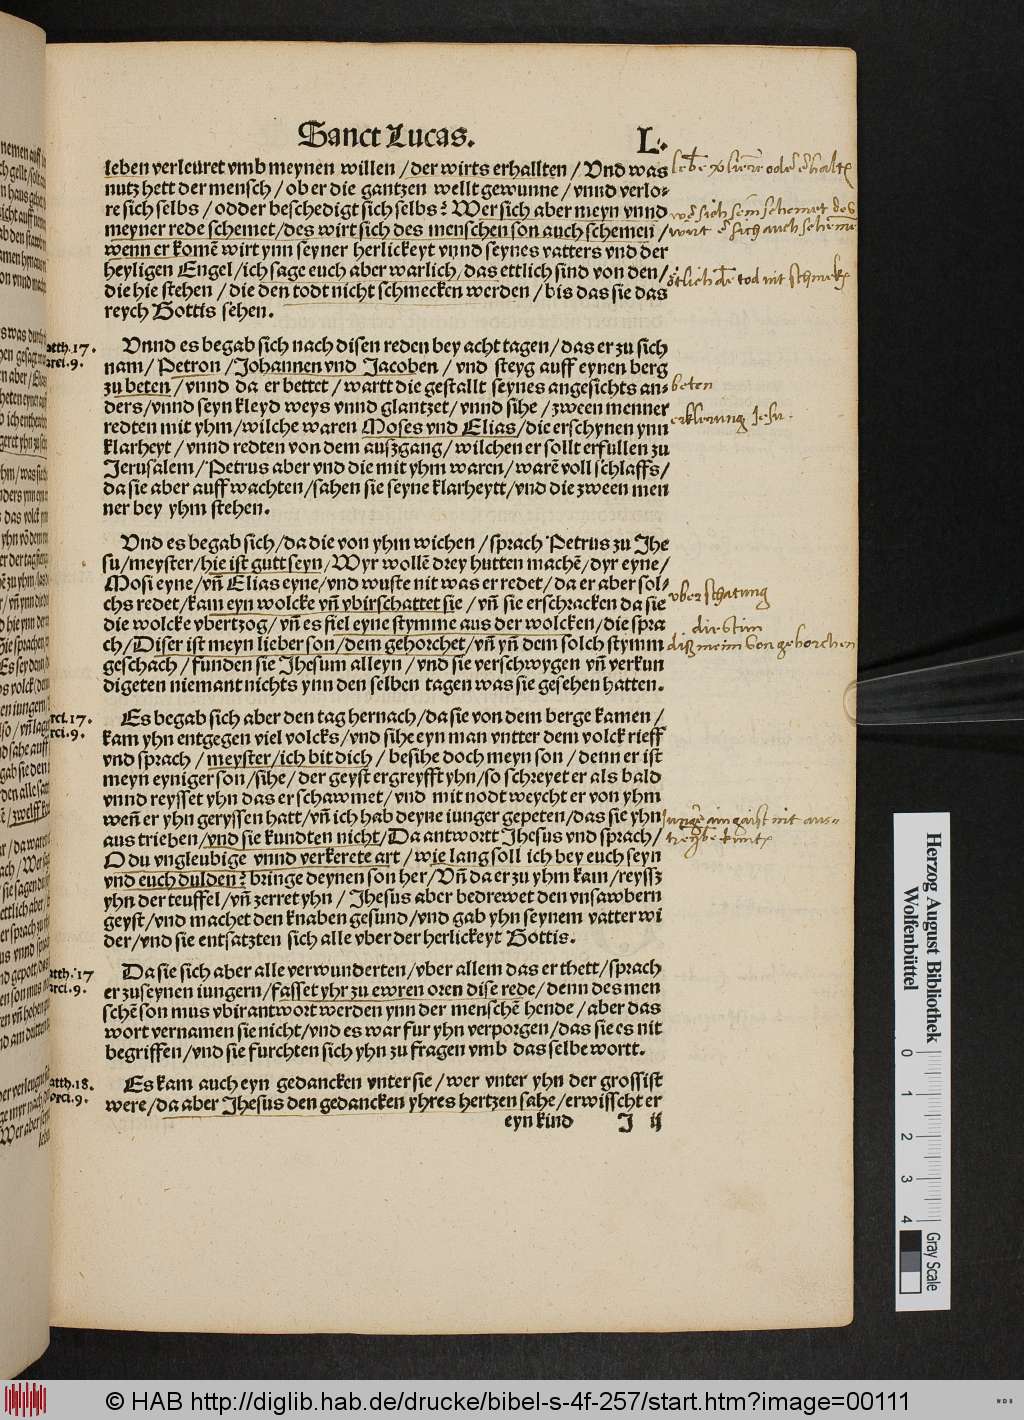 Sanct Lucas. L.
leben verleuret vmb meynen willen / der wirts erhallten / Vnd was
nutz hett der mensch / ob er die gantzen wellt gewunne / vnnd verlo-
re sich selbs / odder beschedigt sich selbs? Wer sich aber meyn vnnd
meyner rede schemet / des wirt sich des menschen son auch schemen /
wenn er komē wirt ynn seyner herlickeyt vnnd seynes vatters vnd der
heyligen Engel / ich sage euch aber warlich, das ettlich sind von den /
die hie stehen / die den todt nicht schmecken werden / bis das sie das
reych Gottis sehen.
Matth. 17.
Marci. 9.
Vnnd es begab sich nach disen reden bey acht tagen / das er zu sich
nam / Petron / Johannen vnd Jacoben / vnd steyg auff eynen berg
zu beten / vnnd da er bettet / wartt die gestallt seynes angesichts an-
ders / vnnd seyn kleyd weys vnnd glantzet / vnnd sihe / zween menner
redten mit yhm / wilche waren Moses vnd Elias / die erschynen ynn
klarheyt / vnnd redten von dem auszgang / wilchen er sollt erfullen zu
Jerusalem / Petrus aber vnd die mit yhm waren / warē voll schlaffs /
da sie aber auff wachten / sahen sie seyne klarheytt / vnd die zween men
ner bey yhm stehen.
Vnd es begab sich / da die von yhm wichen / sprach Petrus zu Ihe
su / meyster / hie ist gutt seyn / Wyr wollē drey hutten machē / dyr eyne /
Mosi eyne / vn̄ Elias eyne / vnd wuste nit was er redet / da er aber sol-
chs redet / kam eyn wolcke vn̄ vbirschattet sie / vn̄ sie erschracken da sie
die wolcke vbertzog / vn̄ es fiel eyne stymme aus der wolcken / die spra
ch / Diser ist meyn lieber son / dem gehorchet / vn̄ yn̄ dem solch stymm
geschach / funden sie Ihesum alleyn / vnd sie verschwygen vn̄ verkun
digeten niemant nichts ynn den selben tagen was sie gesehen hatten.
rci. 17.
rci. 9.
Es begab sich aber den tag hernach / da sie von dem berge kamen /
kam yhn entgegen viel volcks / vnd sihe eyn man vntter dem volck rieff
vnd sprach / meyster / ich bit dich / besihe doch meyn son / denn er ist
meyn eyniger son / sihe / der geyst ergreyfft yhn / so schreyet er als bald
vnnd reysset yhn das er schawmet / vnd mit nodt weycht er von yhm
wen̄ er yhn geryssen hatt / vn̄ ich hab deyne iunger gepeten / das sie yhn
aus trieben / vnd sie kundten nicht / Da antwortt Ihesus vnd sprach /
O du vngleubige vnnd verkerete art / wie lang soll ich bey euch seyn
vnd euch dulden? bringe deynen son her / Vn̄ da er zu yhm kam / reyssz
yhn der teuffel / vn̄ zerret yhn / Ihesus aber bedrewet den vnsawbern
geyst / vnd machet den knaben gesund / vnd gab yhn seynem vatter wi
der / vnd sie entsatzten sich alle vber der herlickeyt Gottis.
atth. 17
arci. 9.
Da sie sich aber alle verwunderten / vber allem das er thett / sprach
er zu seynen iungern / fasset yhr zu ewren oren dise rede / denn des men
schē son mus vbirantwort werden ynn der menschē hende / aber das
wort vernamen sie nicht / vnd es war fur yhn verporgen / das sie es nit
begriffen / vnd sie furchten sich yhn zu fragen vmb das selbe wortt.
atth. 18.
arci. 9.
Es kam auch eyn gedancken vnter sie / wer vnter yhn der grossist
were / da aber Ihesus den gedancken yhres hertzen sahe / erwisscht er
eyn kind J ij
beten
erklerung Jesu.
vberschatung
die stim
Herzog August Bibliothek
Wolfenbüttel
0 1 2 3 4
Gray Scale
© HAB http://diglib.hab.de/drucke/bibel-s-4f-257/start.htm?image=00111